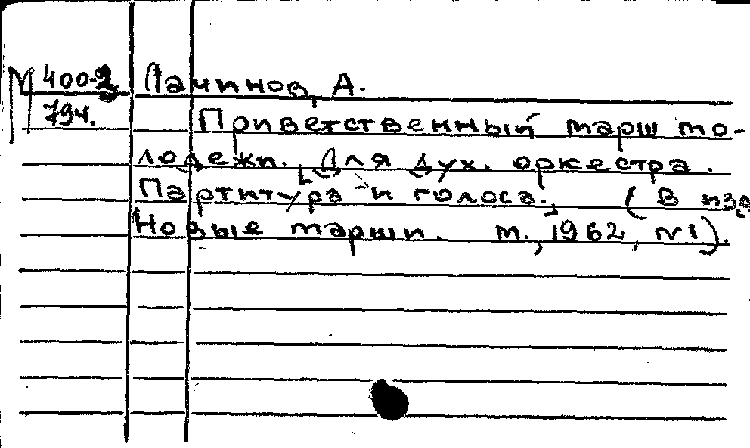 М 400-2
794.
Лачинов, А.
Приветственный марш мо-
лодежи. [Для дух. оркестра.
Партитура и голоса., (В изд
Новые марши. М., 1962, №1).